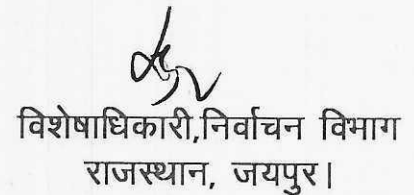 विशेषाधिकारी,निर्वाचन विभाग
राजस्थान, जयपुर।